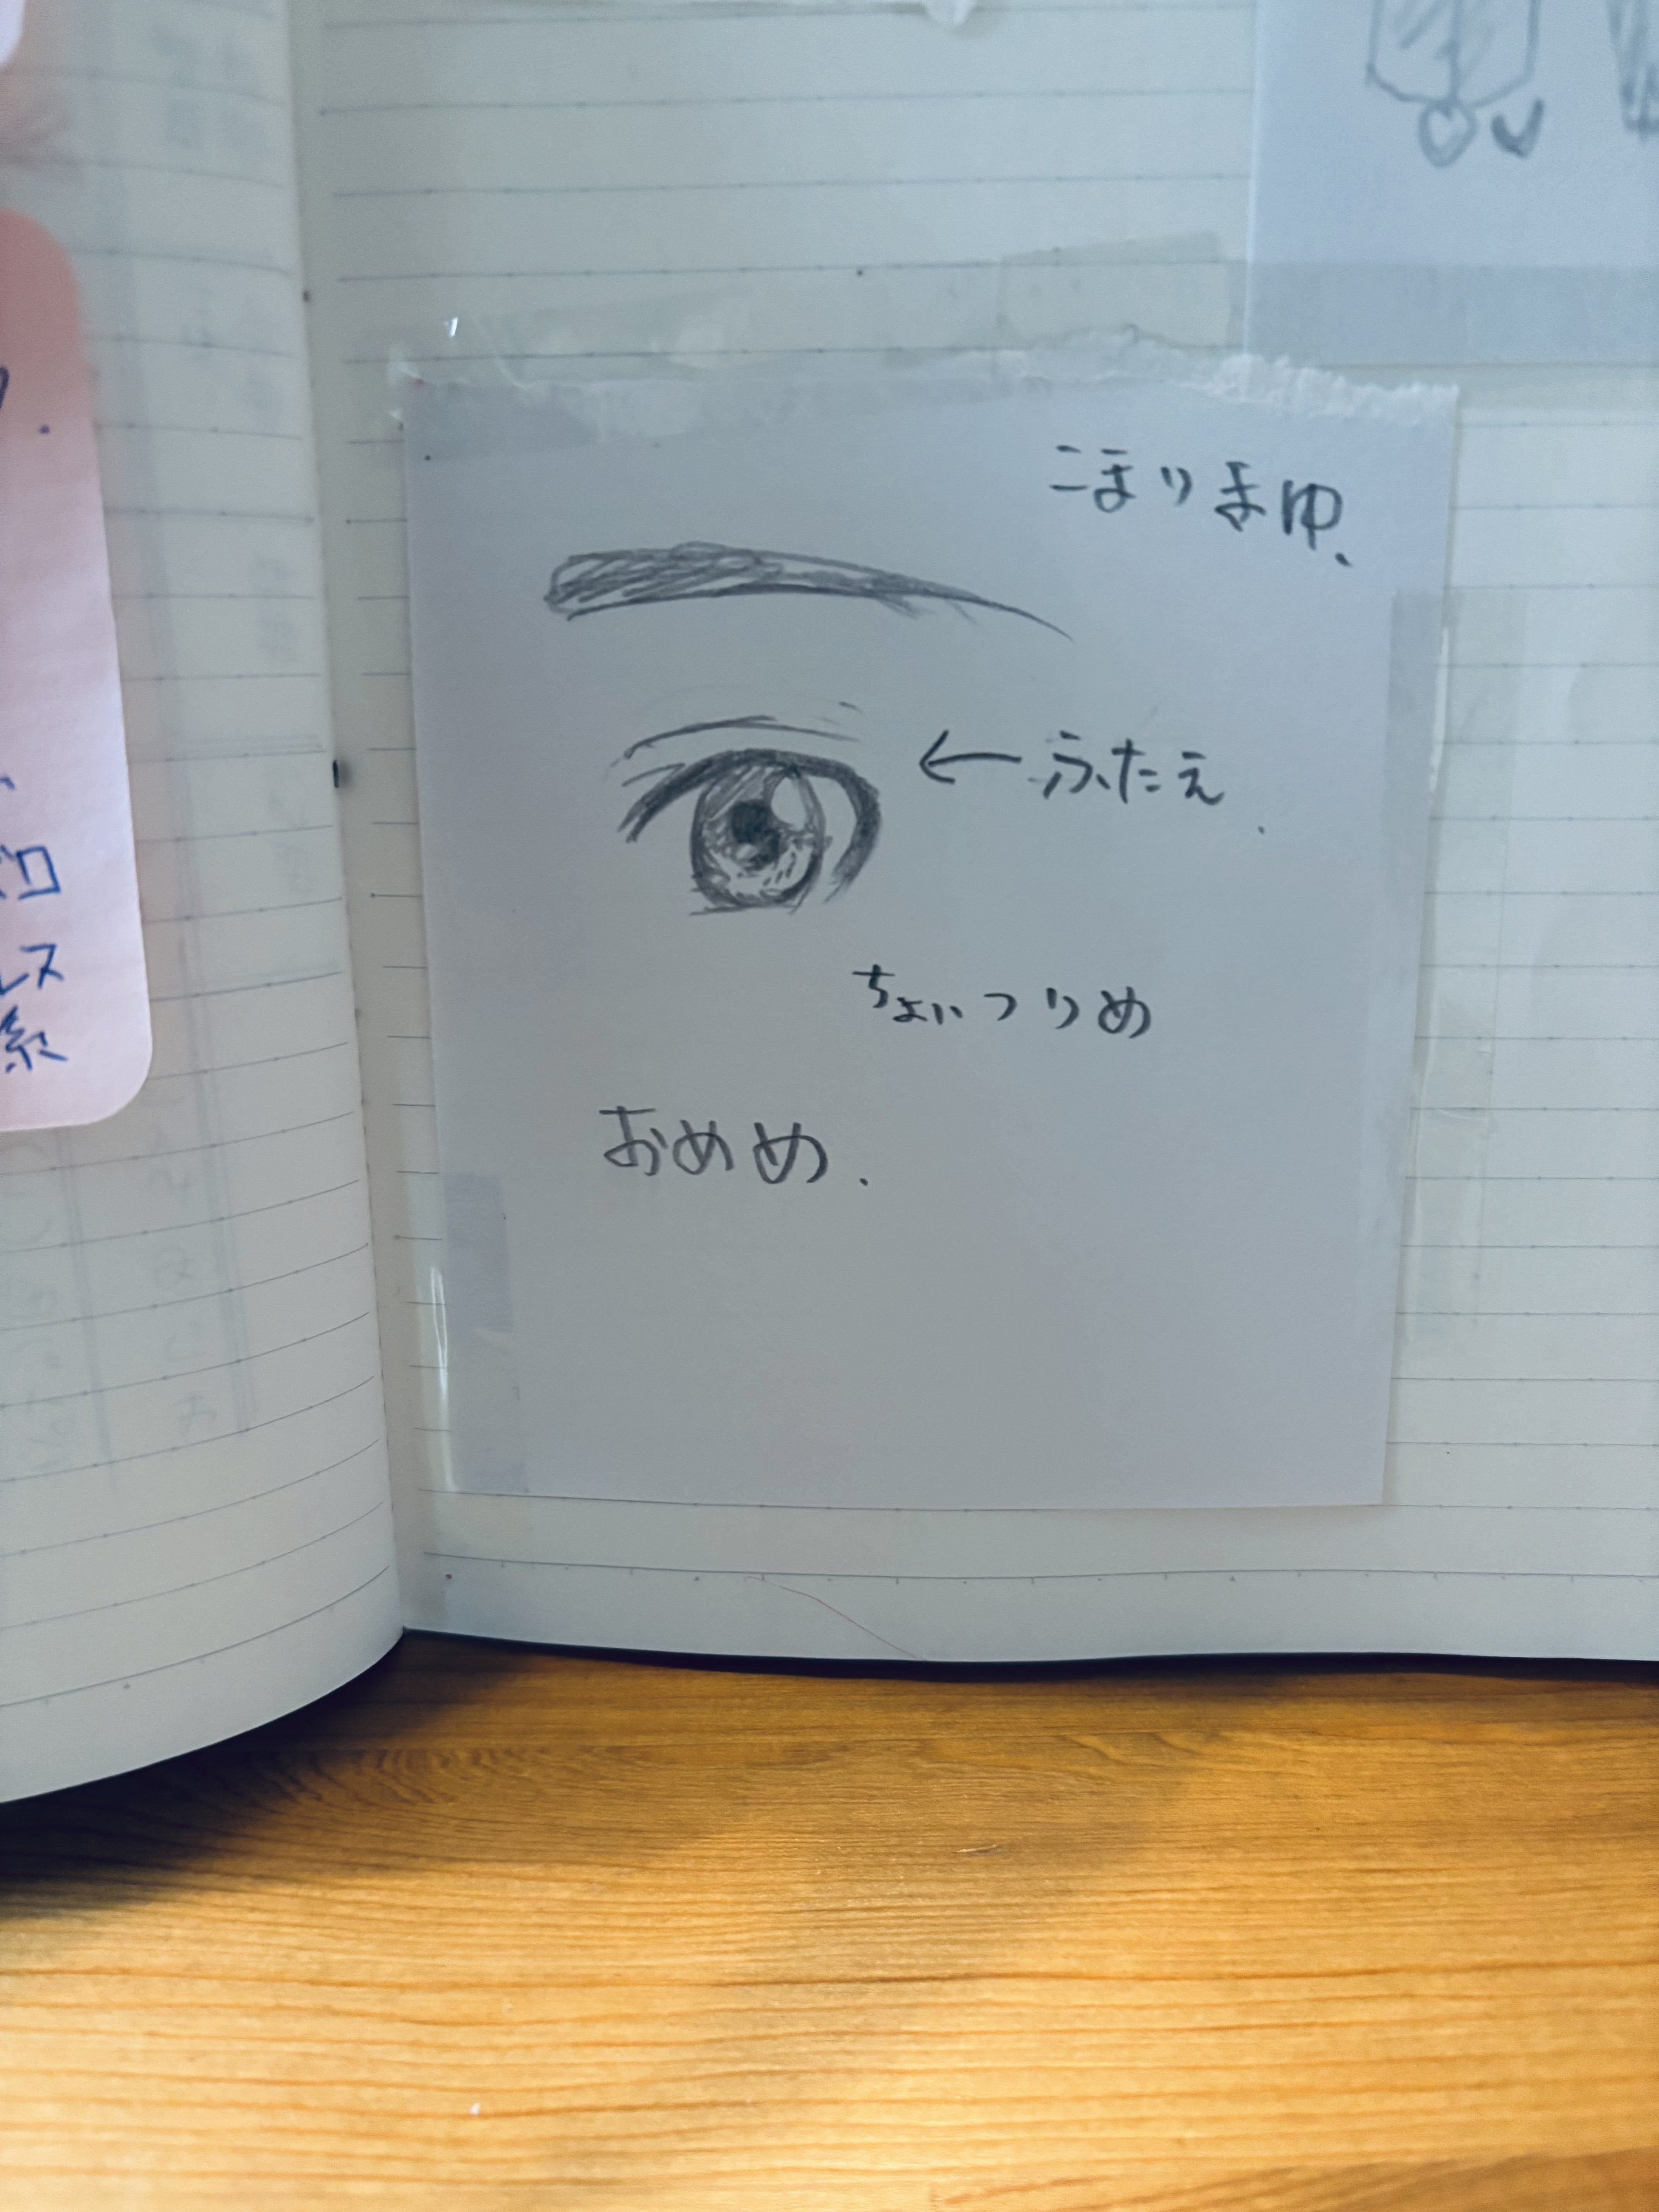 こまりまゆ、
←ふたえ.
ちょいつりめ
おめめ.
レス
系